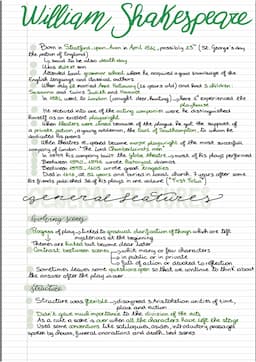 William Shakespeare
Born in Stratford-upon-Avon in April 1564, possibly 23rd (St. George's day
the patron of England)
↳ said to be also death day
Was eldest son
Attended local grammar school where he acquired a good knowledge of the
English language and classical authors
When only 18 married Anne Hathaway (26 years old) and had 3 children:
Susanna and twins Judith and Hamnet
In 1584 went to London (caught deer hunting) → here he experienced the
playhouse
He was received into one of the acting companies where he distinguished
himself as an excellent playwright.
When theatres were closed because of the plague he got the support of
a private patron, a young nobleman, the Earl of Southampton, to whom he
dedicated his poems
When theatres reopened became major playwright of the most successful
company of London "The Lord Chamberlain's men"
In 1599 his company built the Globe theatre → most of his plays performed
Between 1590, 1596 wrote Romantic dramas
Between 1595, 1605 wrote great tragedies
Died in 1616, at 52 years and buried in local church. 7 years after some
his friends published 36 of his plays in one volume ("First Folio")
general features
Evolving scenes
Progress of play is linked to gradual clarification of things which are left
mysterious at the beginning
Themes are hinted but become clear later
Contrast between scenes → with many or few characters
↳ in public or in private
↳ full of action or devoted to reflection
Sometimes leaves some questions open so that we continue to think about
the answer after the play is over
Structure
Structure was flexible → disregarded Aristotelian unities of time,
place and action
Didn't give much importance to the division of the acts
As a rule a scene is over when all the characters have left the stage
Used some conventions like soliloquies, asides, introductory passages
spoken by chorus, funeral orations and death-bed scenes